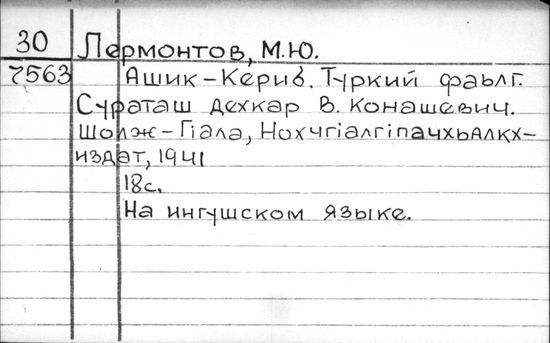 30 Лермонтов, М.Ю.
7563 Ашик-Кериб. Туркий фаьлг.
Сураташ дехкар В. Конашевич.
Шолж-ГIала, НохчгIалгIпачхьалкх-
издат, 1941
18с.
На ингушском языке.